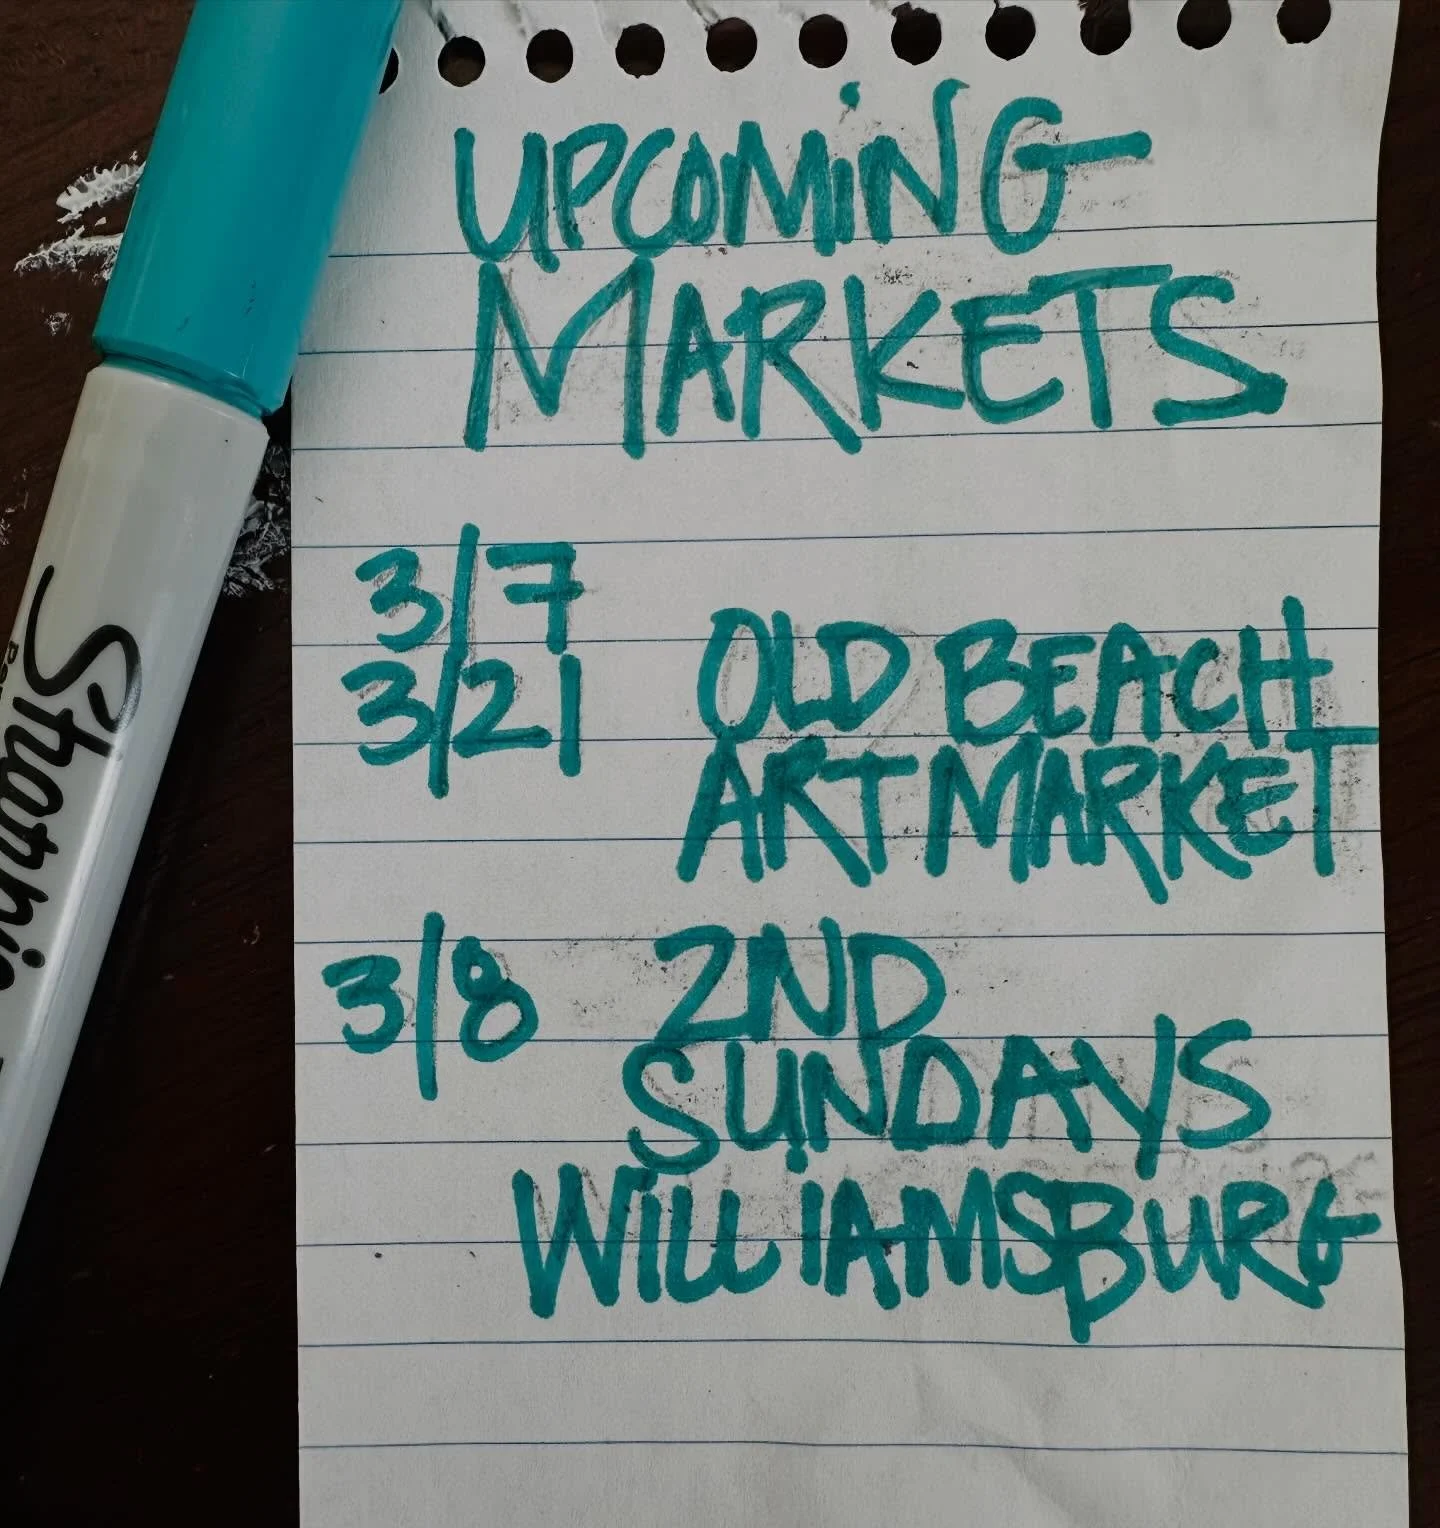 UPCOMING
MARKETS
3/7
3/21
OLD BEACH
ART MARKET
3/8 2ND
SUNDAYS
WILLIAMSBURG
Sharpie